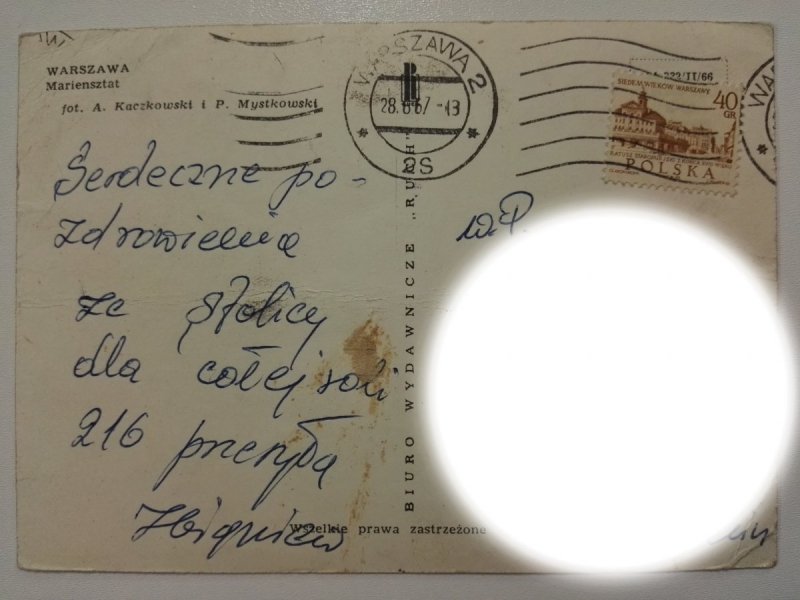 WARSZAWA
Mariensztat
fot. A. Kaczkowski i P. Mystkowski
WARSZAWA 2
28.6 67 -13
2S
222/II/66
SIEDEM WIEKÓW WARSZAWY
40
GR
POLSKA
Serdeczne po-
zdrowienia
ze Stolicy
dla całej sali
216 przesyła
Zbigniew
W.P.
BIURO WYDAWNICZE „RUCH"
Wszelkie prawa zastrzeżone